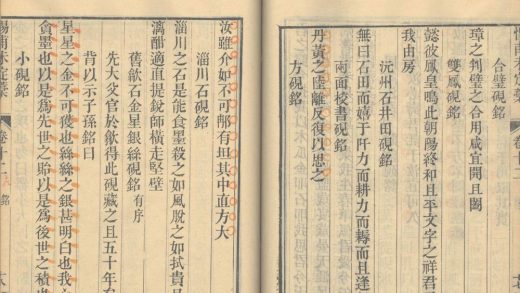 合璧硯銘
璋之判璧之合用咸宜開且闔
雙鳳硯銘
懿彼鳳皇鳴此朝陽終和且平文字之祥君
我由房
沅州石井田硯銘
無曰石田而嬉于阡力而耕力而耨而且逢
兩面校書硯銘
丹黃之陸離反復以思之
方硯銘
汝雖介如不可有坦其中直方大
淄川石硯銘
淄川之石是能食墨殺之如風脫之如拭貴
漓酣適直提銳師橫走堅壁
舊歙石金星銀絲硯銘有序
先大父官於歙得此硯藏之且五十年
背以示子孫銘曰
星星之金不可獲也絲絲之銀甚明白也我
貪墨也以是為先世之貽以是為後世之積也
小硯銘
惕甫未定藁 卷十二 銘